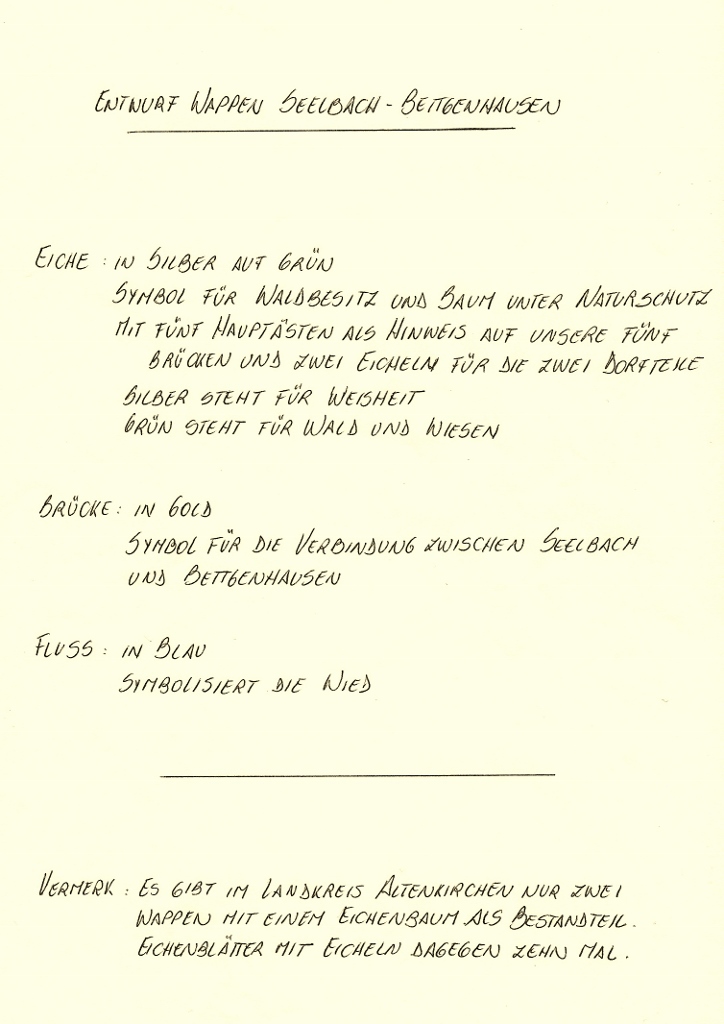 ENTWURF WAPPEN SEELBACH - BETTGENHAUSEN
EICHE : IN SILBER AUF GRÜN
SYMBOL FÜR WALDBESITZ UND BAUM UNTER NATURSCHUTZ
MIT FÜNF HAUPTÄSTEN ALS HINWEIS AUF UNSERE FÜNF
BRÜCKEN UND ZWEI EICHELN FÜR DIE ZWEI DORFTEILE
SILBER STEHT FÜR WEISHEIT
GRÜN STEHT FÜR WALD UND WIESEN
BRÜCKE : IN GOLD
SYMBOL FÜR DIE VERBINDUNG ZWISCHEN SEELBACH
UND BETTGENHAUSEN
FLUSS : IN BLAU
SYMBOLISIERT DIE WIED
VERMERK : ES GIBT IM LANDKREIS ALTENKIRCHEN NUR ZWEI
WAPPEN MIT EINEM EICHENBAUM ALS BESTANDTEIL.
EICHENBLÄTTER MIT EICHELN DAGEGEN ZEHN MAL.